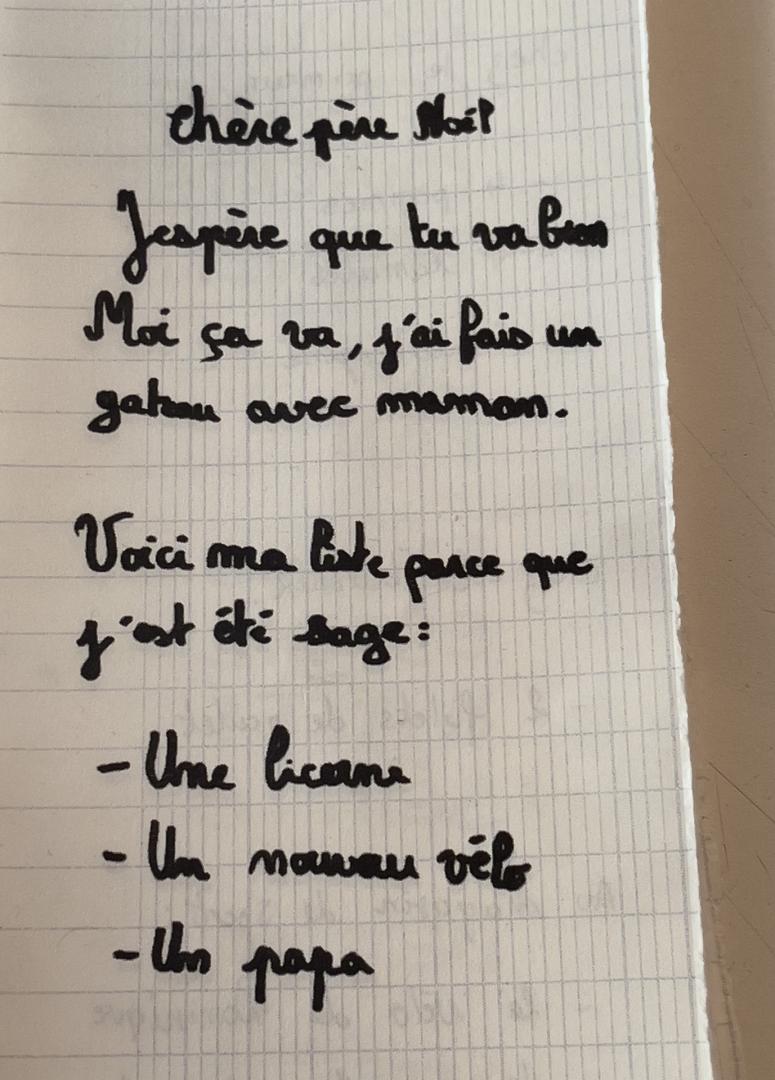 chère père Noël
J'espère que tu va bien
Moi ça va, j'ai fais un
gateau avec maman.
Voici ma liste parce que
j'est été sage:
- Une licorne
- Un nouveau vélo
- Un papa